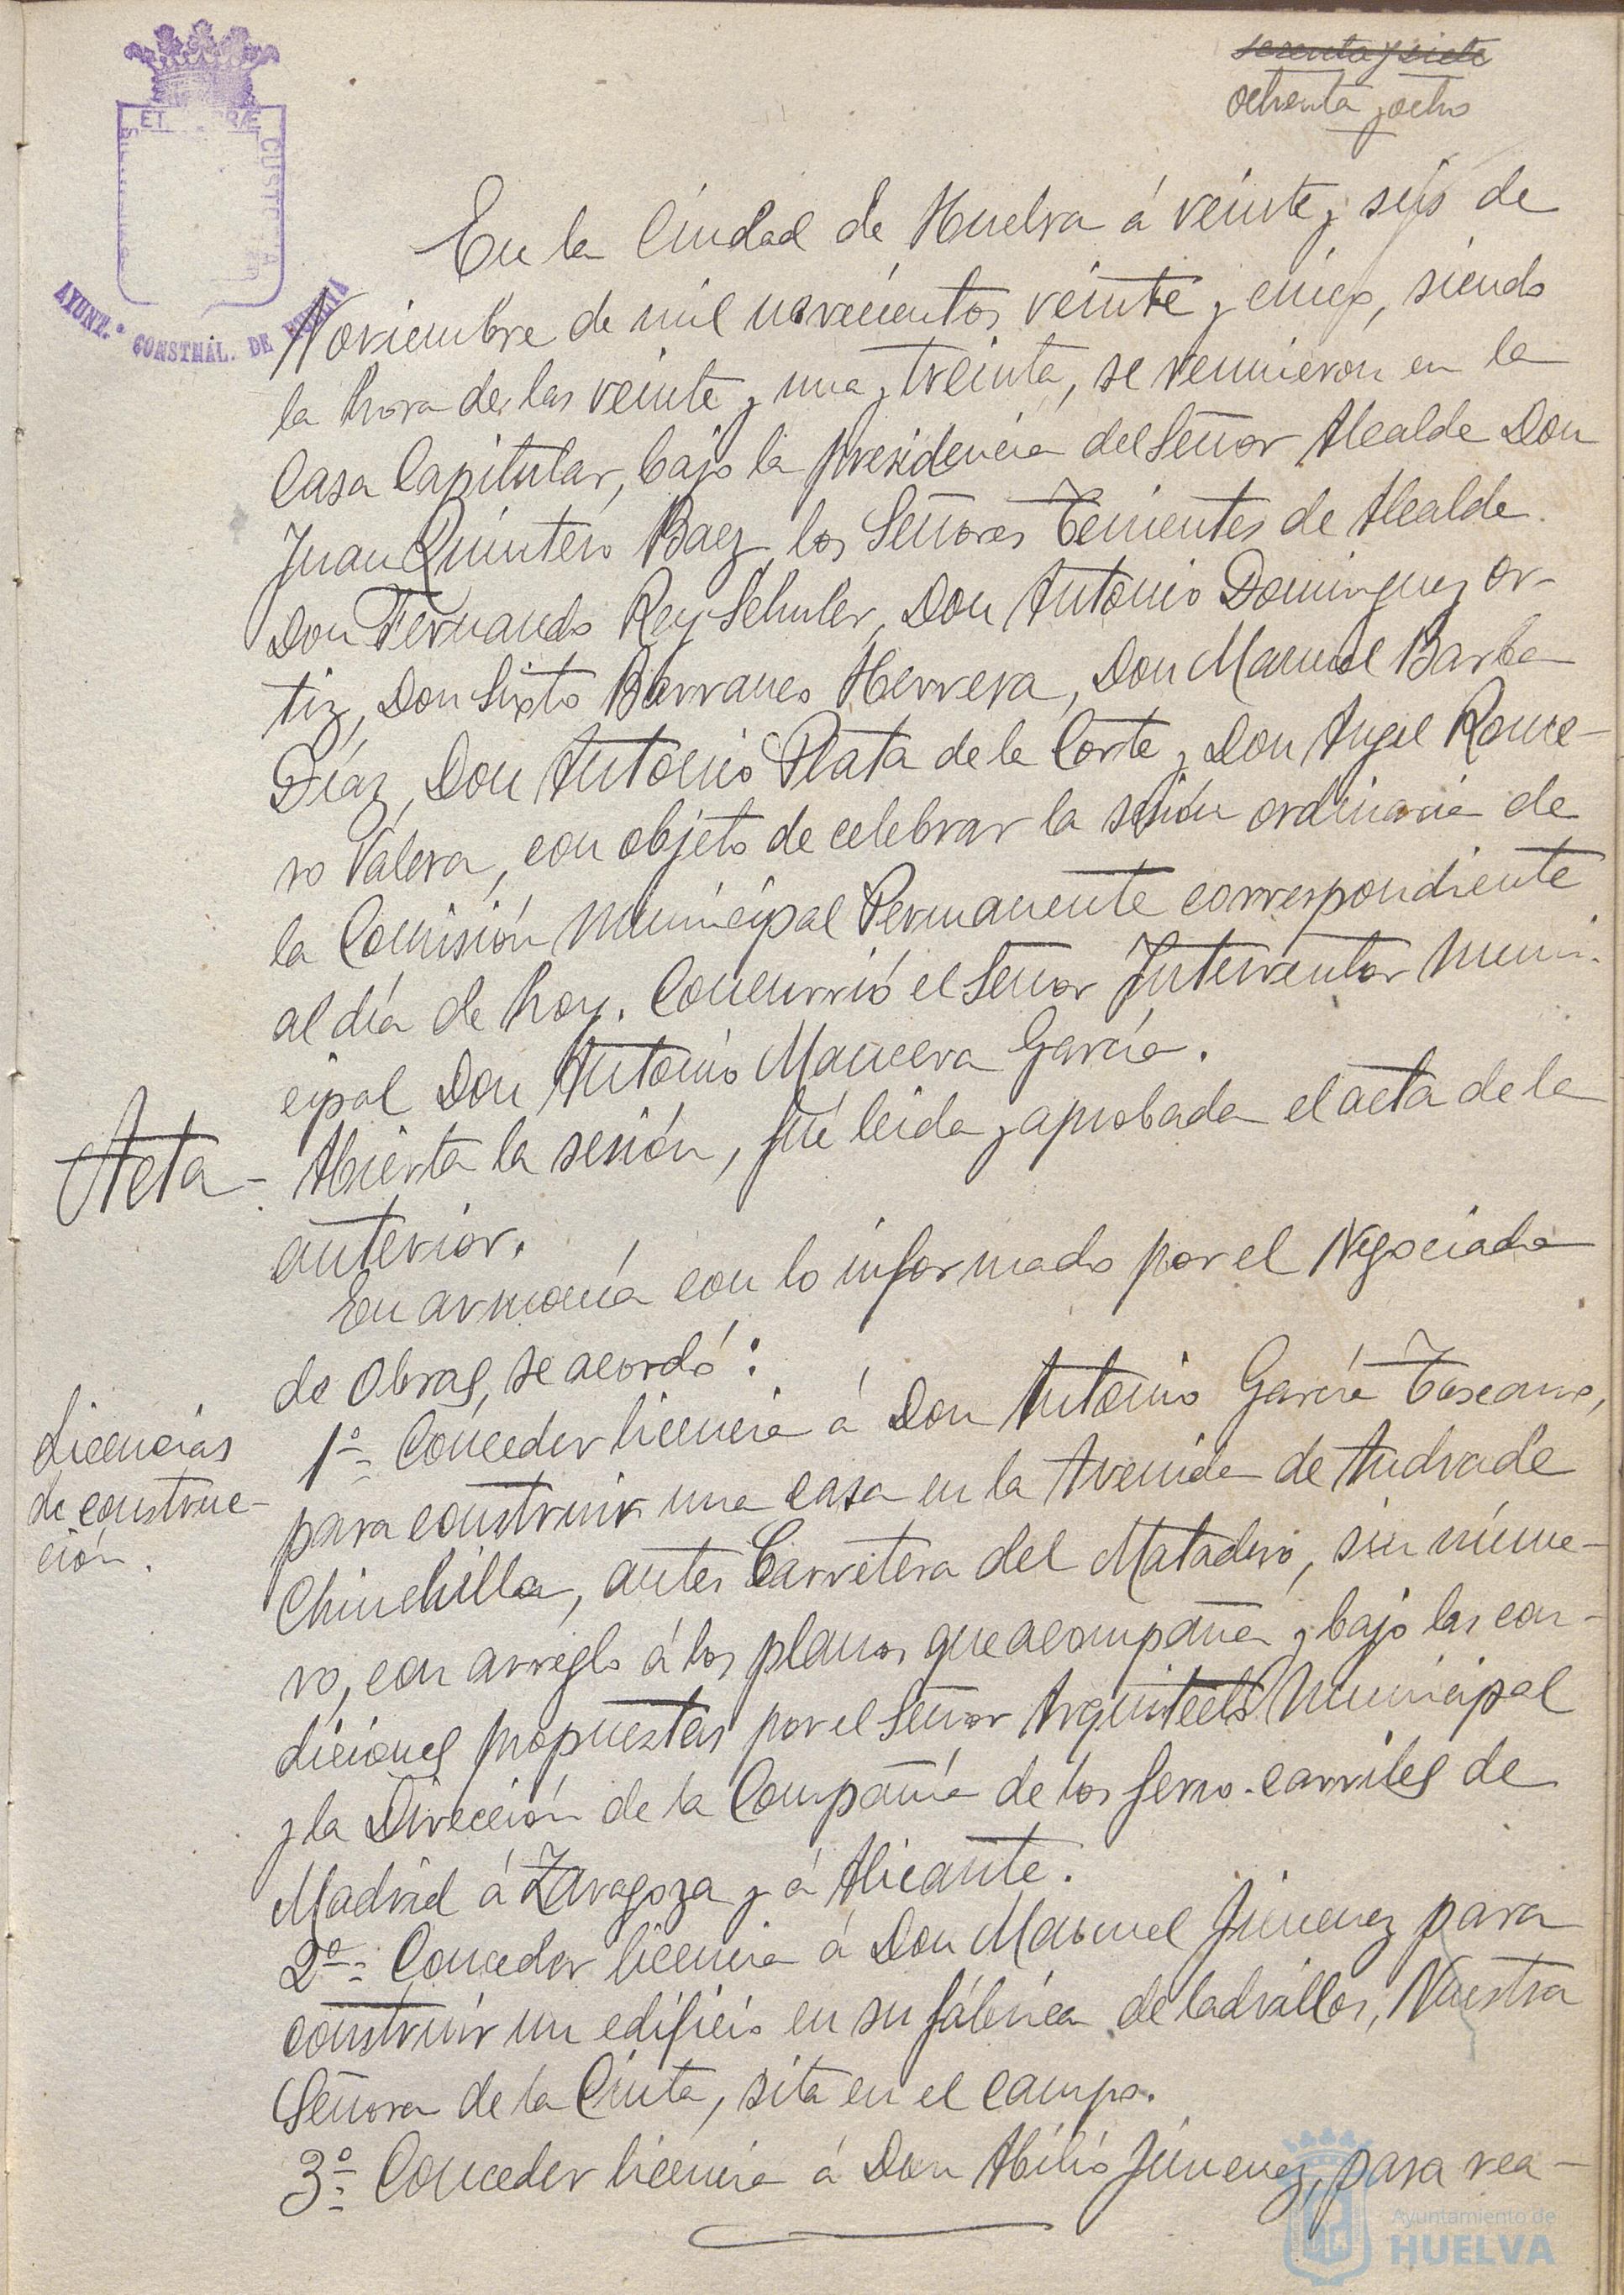 sesenta y siete
ochenta y ocho
ET
CUSTODIA
AYUNT.º CONSTNAL. DE HUELVA
En la Ciudad de Huelva á veinte y seis de
Noviembre de mil novecientos veinte y cinco, siendo
la hora de las veinte y una y treinta, se reunieron en la
Casa Capitular, bajo la presidencia del Señor Alcalde Don
Juan Quintero Baez, los Señores Tenientes de Alcalde
Don Fernando Rey Schuler, Don Antonio Dominguez Or-
tiz, Don Sixto Barranco Herrera, Don Manuel Barba
Díaz, Don Antonio Plata de la Corte y Don Angel Rome-
ro Valera, con objeto de celebrar la sesión ordinaria de
la Comisión Municipal Permanente correspondiente
al día de hoy. Concurrió el Señor Interventor Muni-
cipal Don Antonio Mancera García.
Acta - Abierta la sesión, fué leida y aprobada el acta de la
anterior.
En armonía con lo informado por el Negociado
de Obras, se acordó:
Licencias
de construc-
ción.
1º- Conceder licencia á Don Antonio García Toscano,
para construir una casa en la Avenida de Andrade
Chinchilla, antes Carretera del Matadero, sin núme-
ro, con arreglo á los planos que acompaña y bajo las con-
diciones propuestas por el Señor Arquitecto Municipal
y la Dirección de la Compañía de los ferro-carriles de
Madrid á Zaragoza y á Alicante.
2º- Conceder licencia á Don Manuel Jimenez para
construir un edificio en su fábrica de ladrillos, Nuestra
Señora de la Cinta, sita en el campo.
3º- Conceder licencia á Don Abilio Jimenez, para rea-
Ayuntamiento de
HUELVA